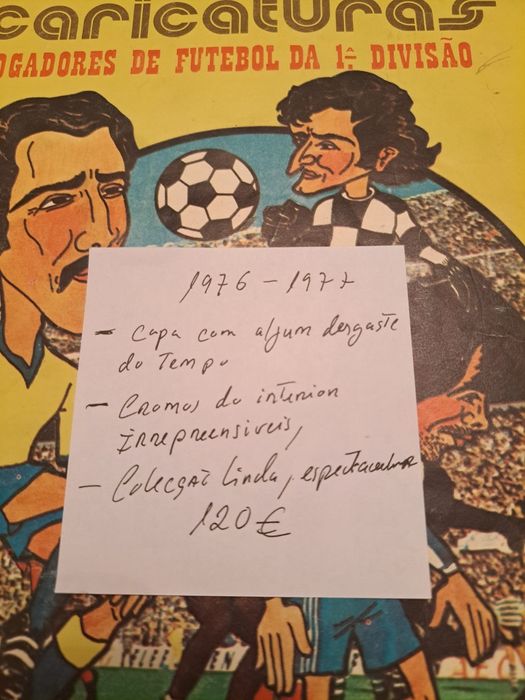 caricaturas
OGADORES DE FUTEBOL DA 1ª DIVISÃO
1976 - 1977
- Capa com algum desgaste
do Tempo
- Cromos do interior
Irrepreensiveis,
- Colecção linda, espectacular
120€